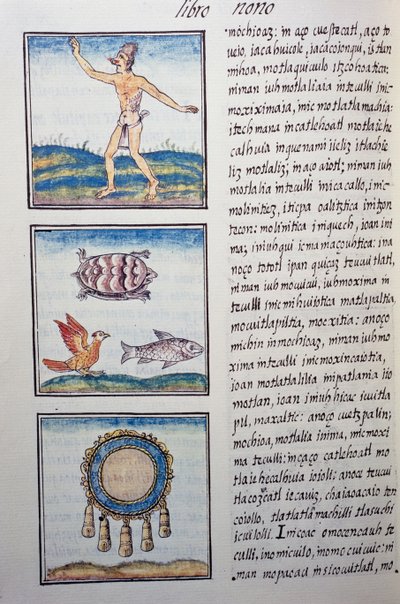 libro nono
mochioaz: in aço cuextecatl, aço to
ueio, iacahuicole, iacacoionqui, ixtlan
mihoa, motlaquicuilo itzcohoatica:
niman iuh motlaliaia in teculli inic
moxiximaia, inic motlatlamachia:
itech mana in catlehoatl motlaiehe
calhuia in quenami iieliz itlachie
liz motlaliz: in aço aiotl: niman iuh
motlalia in teculli in icacallo, inic
moliniticz, itiepa oalitztica in itzon
tecon: molinitica in iquech, ioan ini
ma; in iuhqui ic ma maçouhtica: ina
noço tototl ipan quiçaz teucuitlatl,
niman iuh mocuicui, iuh moxima in
teculli inic mihuiiotica matlapaltia,
mocuitlapiltia, mocxitia: anoço
michin in mochioaz, niman iuh mo
xima in teculli inic moxincaiotia,
ioan motlatlalilia in ipatlania ioc
motlan, ioan in iuh hicac icuitla
pil, maxaltic: anoço cuetzpalin;
mochioa, motlalia inima, inic moxi
ma teculli: inçaço catlehoatl mo
tlaiehecalhuia ioioli: anoce teucui
tlacozcatl iecauiz, chaiaoacaio ten
coiollo, tlatlatlamachilli tlaxochi
icuilolli. In icoac omocencauh te
culli, in omicuilo, in omocuicuic: ni
man mopaoaci in xicocuitlatl, mo